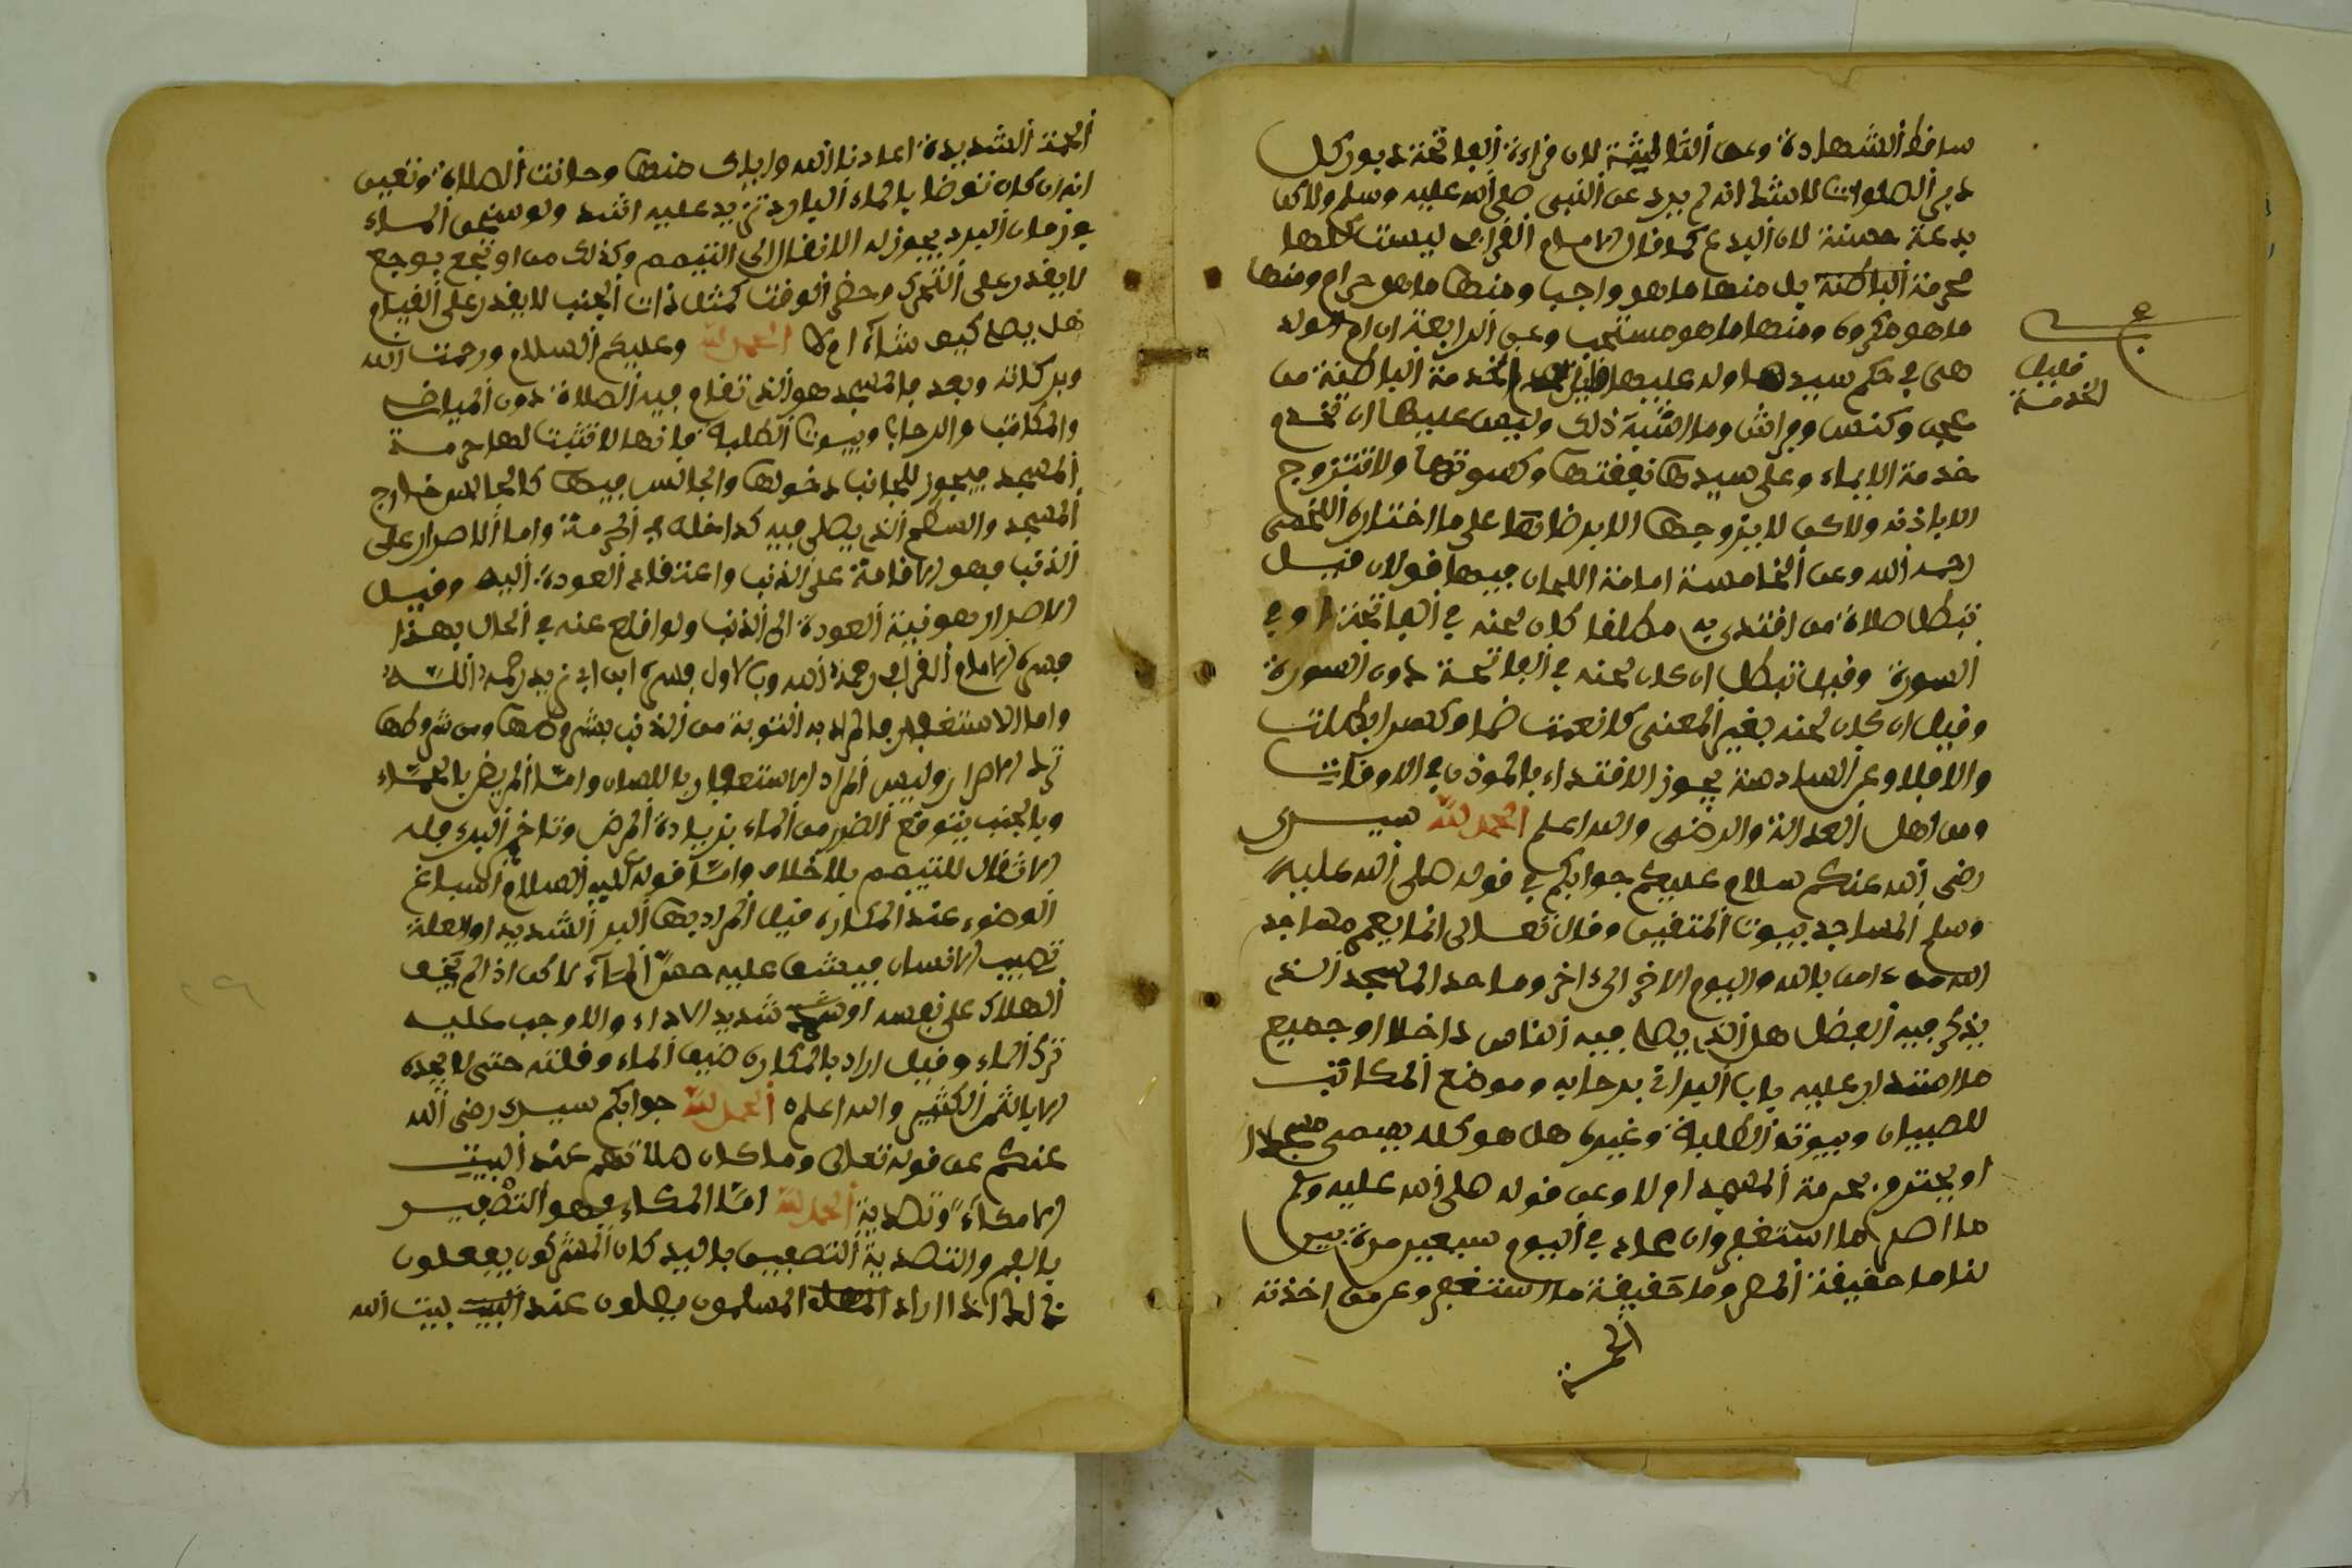 ساقط الشهادة وعن الثالثة بان قراءة الفاتحة دبور كل
دبر الصلوات لا شك انه لم يرد عن النبي صلى الله عليه وسلم ولاكن
بدعة حسنة لان البدع كما قال الامام القرافي ليست كلها
محرمة بل منها ما هو واجب ومنها ما هو حرام ومنها
ما هو مكروه ومنها ما هو مستحب وعن الرابعة ان ام الولد
هي في حكم سيدها وله عليها الخدمة الباطنة من
عجن وكنس وفراش وما اشبه ذلك وليس عليها ان تخدم
خدمة الاماء وعلى سيدها نفقتها وكسوتها ولا تتزوج
الا باذنه ولاكن لا يزوجها الا برضاها على ما اختاره اللخمي
رحمه الله وعن الخامسة امامة اللحان فيها قولان قيل
تبطل صلاة من اقتدى به مطلقا كان لحنه في الفاتحة او في
السورة وقيل تبطل ان كان لحنه في الفاتحة دون السورة
وقيل ان كان لحنه يغير المعنى كانعمت ضما وكسرا بطلت
والا فلا وعن السادسة يجوز الاقتداء بالموذن في الاوقات
ومن اهل العدالة والرضى والله اعلم الحمد لله سيدي
رضي الله عنكم سلام عليكم جوابكم في قوله صلى الله عليه
وسلم المساجد بيوت المتقين وقال تعالى انما يعمر مساجد
الله من ءامن بالله واليوم الاخر الى ءاخر وما حد المسجد الذي
يذكر فيه الفضل هل الذي يصلى فيه الناس داخلا او جميع
ما استدار عليه باب البراني برحابه وموضع المكاتب
للصبيان وبيوت الطلبة وغيره هل هو كله يسمى مسجدا
او يحترم بحرمة المسجد ام لا وعن قوله صلى الله عليه وسلم
ما اصر ما استغفر وان عاد في اليوم سبعين مرة بين
لنا ما حقيقة المصر وما حقيقة ما استغفر وعن من اخذته
الحمة
قليل
الخدمة
الحمة الشديدة اعاذنا الله واياك منها وحانت الصلاة وتعين
انه ان كان توضا بالماء البارد تزيد عليه اشد ولو سخن الماء
في زمان البرد يجوز له الانتقال الى التيمم وكذلك من اوتجع بوجع
لا يقدر على التحرك وحضر الوقت كمثل ذات الجنب لا يقدر على القيام
هل يصلي كيف شاء ام لا الحمد لله وعليكم السلام ورحمت الله
وبركاته وبعد فالمسجد هو الذي تقام فيه الصلاة دون المياض
والمكاتب والرحاب وبيوت الطلبة فانها لا تثبت لها حرمة
المسجد فيجوز للجانب دخولها والجالس فيها كالجالس خارج
المسجد والسطح الذي يصلى فيه كداخله في الحرمة واما الاصرار على
الذنب فهو الاقامة على الذنب واعتقاد العودة اليه وقيل
الاصرار هو نية العودة الى الذنب ولو اقلع عنه في الحال بهذا
فسره الامام القرافي رحمه الله وبالاول فسره ابن ابي زيد رحمه الله
واما الاستغفار فالمراد به التوبة من الذنب بشروطها ومن شروطها
ترك الاصرار وليس المراد الاستغفار باللسان واما المريض بالحماء
وبالجنب يتوقع الضرر من الماء بزيادة المرض وتاخر البرء فله
الانتقال للتيمم بلا خلاف واما قوله عليه السلام اسباغ
الوضوء عند المكاره فقيل المراد بها البرد الشديد او العلة
تصيب الانسان فيشق عليه مس الماء لاكن اذا لم يخف
الهلاك على نفسه او شديد الاذاء والا وجب عليه
ترك الماء وقيل اراد بالمكاره ضيق الماء وقلته حتى لا يجده
الا بالثمن الكثير والله اعلم الحمد لله جوابكم سيدي رضي الله
عنكم عن قوله تعالى وما كان صلاتهم عند البيت
الا مكاء وتصدية الحمد لله اما المكاء فهو التصفير
بالفم والتصدية التصفيق باليد كان المشركون يفعلون
ذالك اذا اراد المسلمون يصلون عند البيت بيت الله